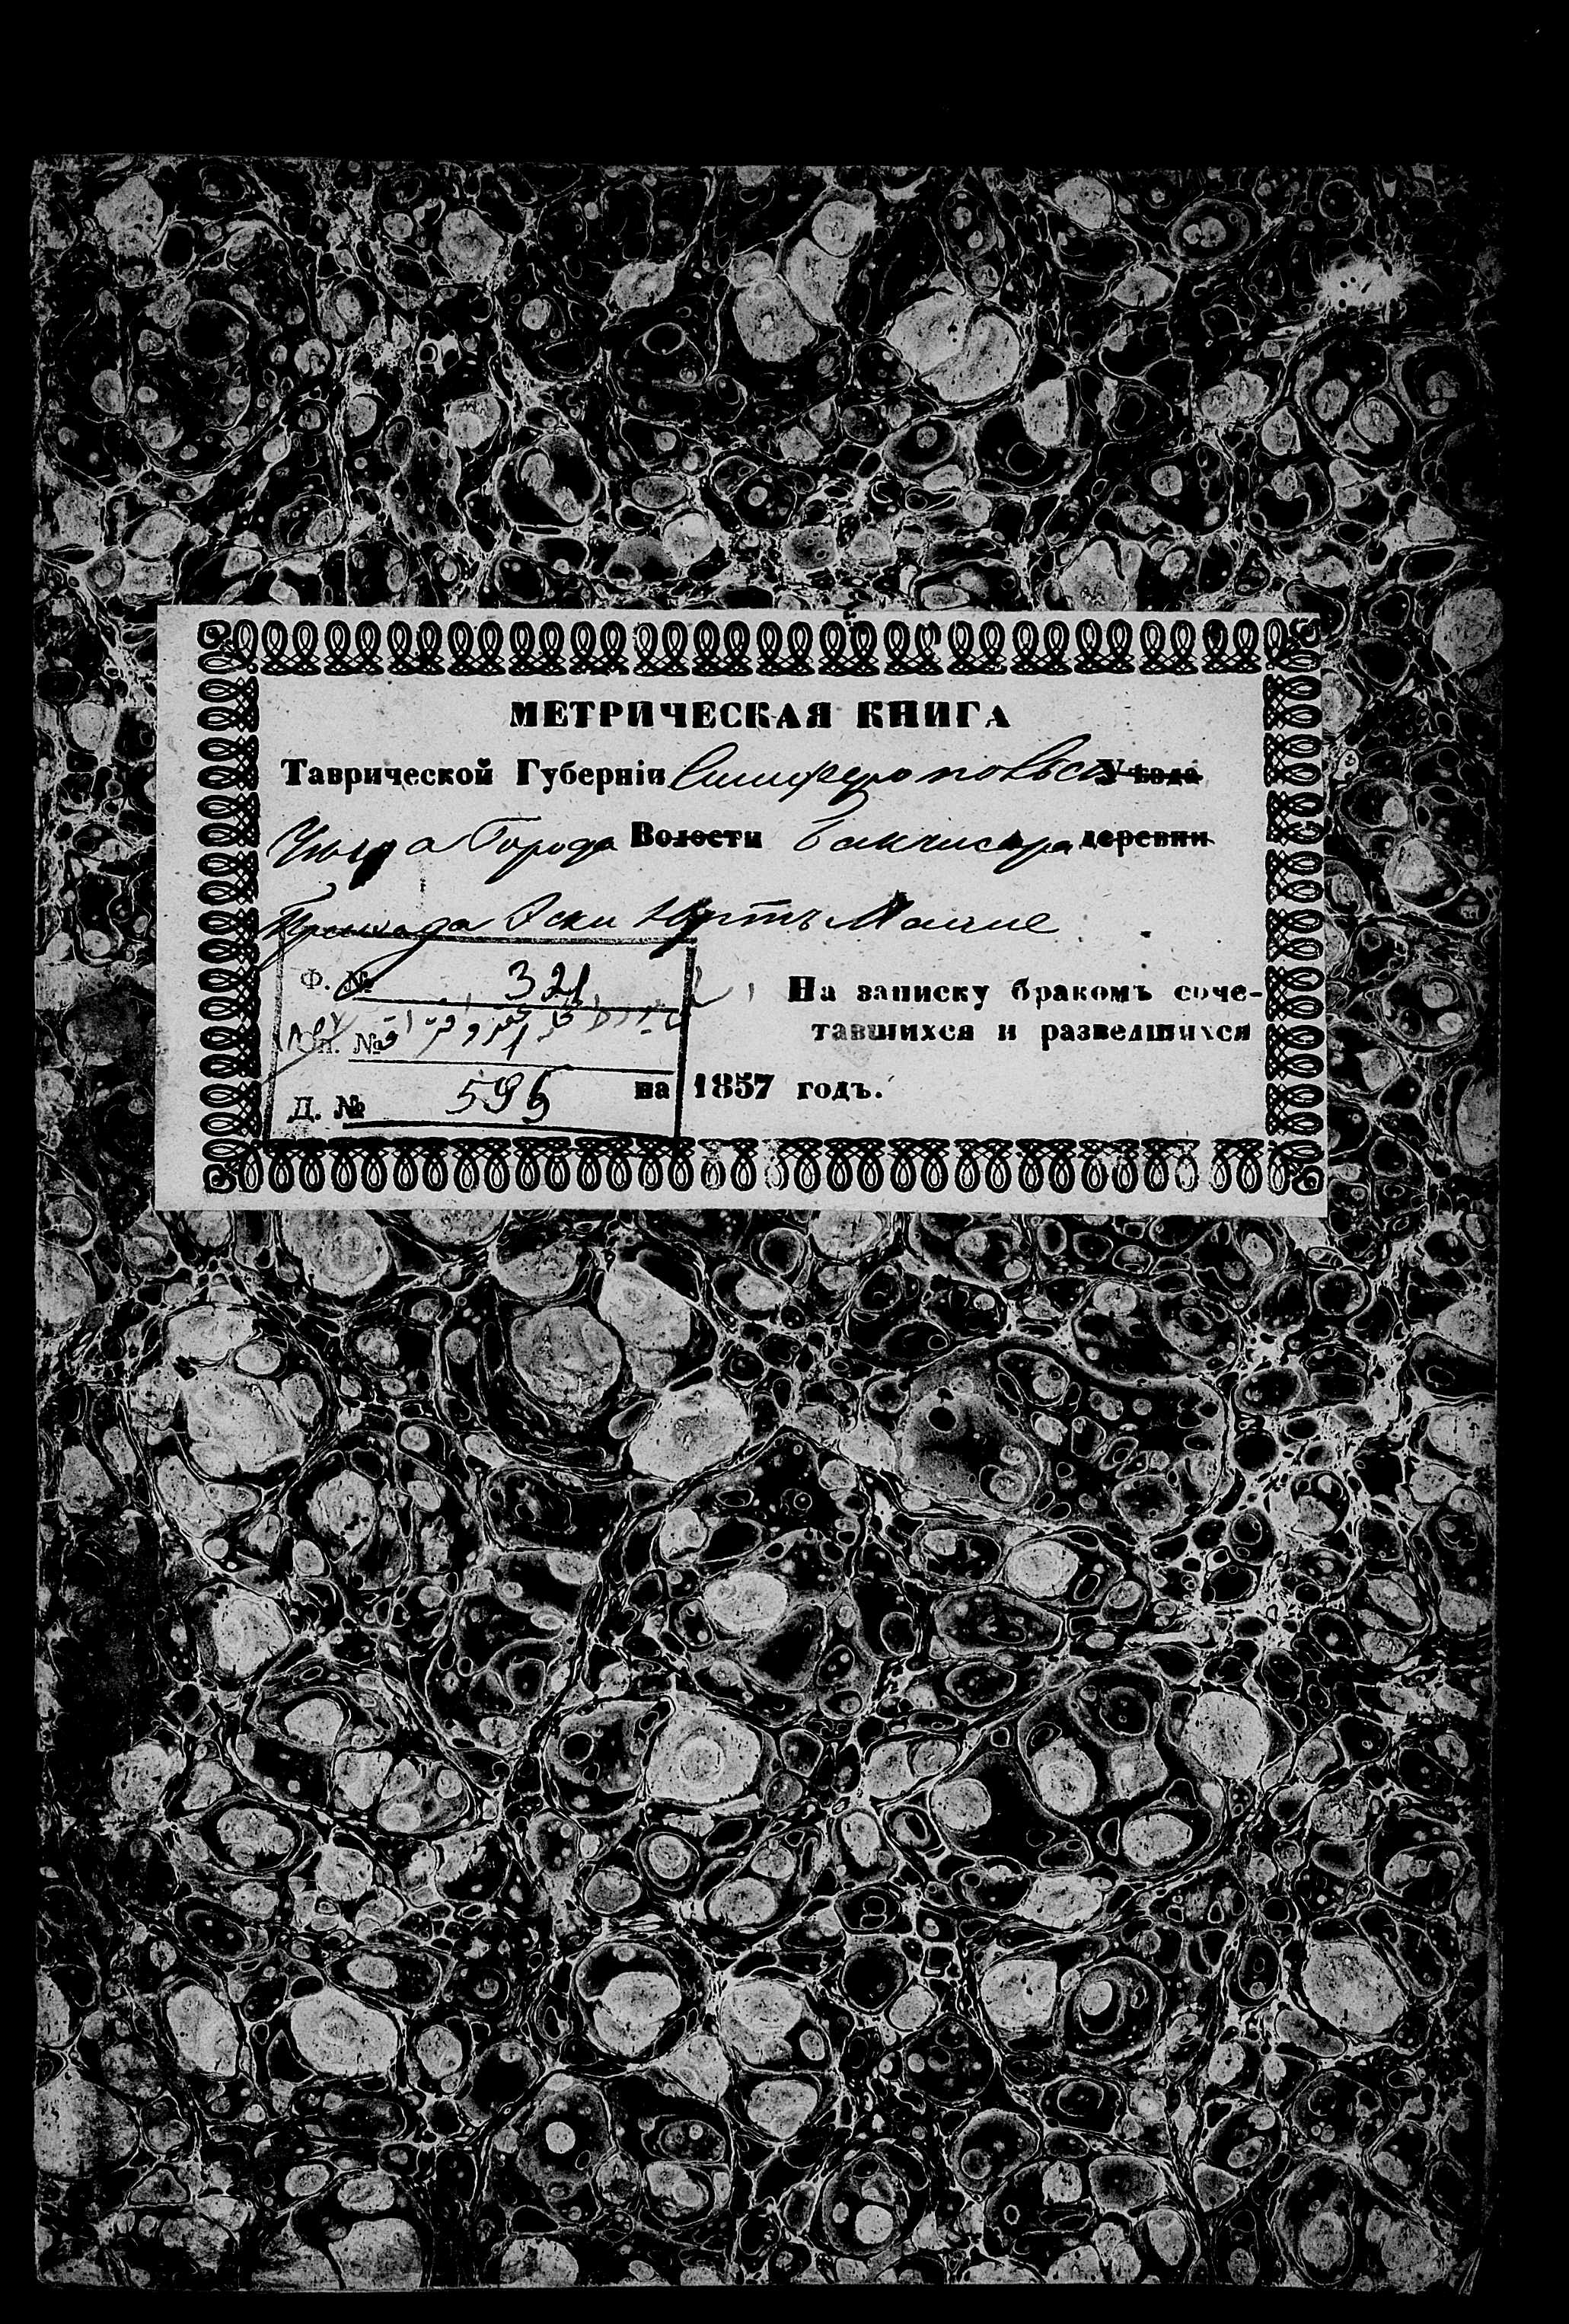 МЕТРИЧЕСКАЯ КНИГА
Таврической Губерніи Симферопольск Уѣзда
Уѣзда Города Волости Бакчисарая деревни
Прихода Эски Юртъ Малие
Ф. № 321
На записку бракомъ соче-
оп. №
тавшихся и разведшихся
на 1857 годъ.
Д. № 595